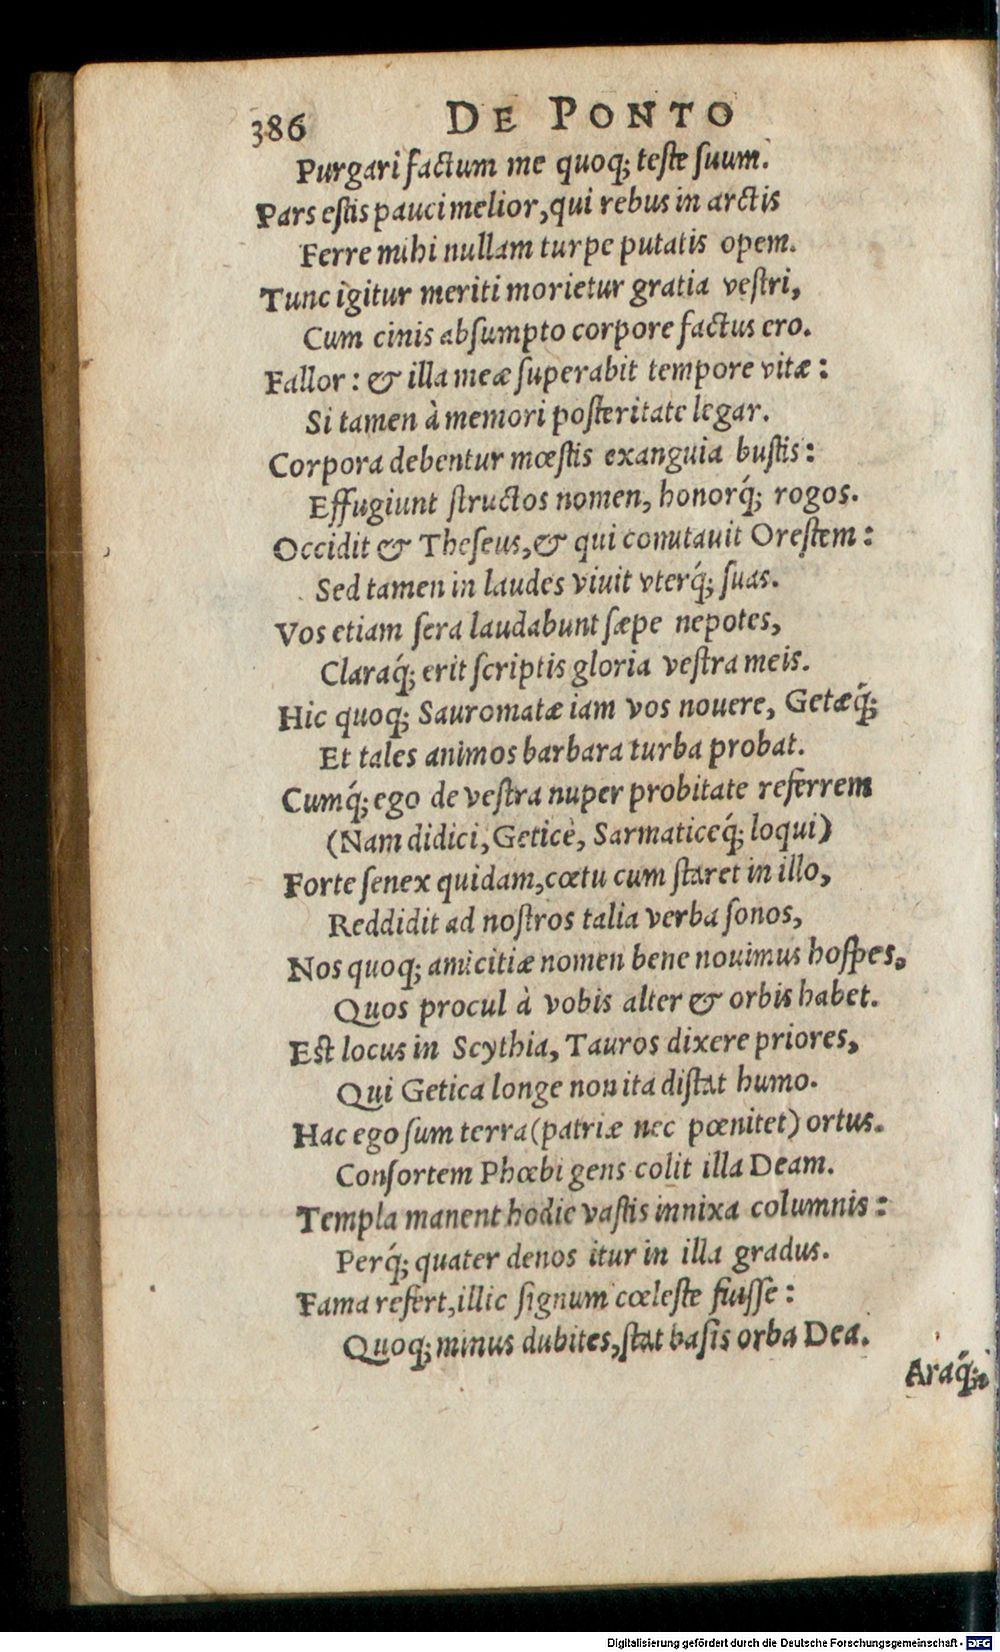 386 DE PONTO
Purgari factum me quoq; teste suum.
Pars estis pauci melior, qui rebus in arctis
Ferre mihi nullam turpe putatis opem.
Tunc igitur meriti morietur gratia vestri,
Cum cinis absumpto corpore factus ero.
Fallor: & illa meæ superabit tempore vitæ:
Si tamen à memori posteritate legar.
Corpora debentur mœstis exanguia bustis:
Effugiunt structos nomen, honorq́; rogos.
Occidit & Theseus, & qui comitauit Orestem:
Sed tamen in laudes viuit vterq́; suas.
Vos etiam sera laudabunt sæpe nepotes,
Claraq́; erit scriptis gloria vestra meis.
Hic quoq; Sauromatæ iam vos nouere, Getæq́;
Et tales animos barbara turba probat.
Cumq́; ego de vestra nuper probitate referrem
(Nam didici, Geticè, Sarmaticeq́; loqui)
Forte senex quidam, cœtu cum staret in illo,
Reddidit ad nostros talia verba sonos,
Nos quoq; amicitiæ nomen bene nouimus hospes,
Quos procul à vobis alter & orbis habet.
Est locus in Scythia, Tauros dixere priores,
Qui Getica longe non ita distat humo.
Hac ego sum terra (patriæ nec pœnitet) ortus.
Consortem Phœbi gens colit illa Deam.
Templa manent hodie vastis innixa columnis:
Perq́; quater denos itur in illa gradus.
Fama refert, illic signum cœleste fuisse:
Quoq; minus dubites, stat basis orba Dea.
Araq́;
Digitalisierung gefördert durch die Deutsche Forschungsgemeinschaft - DFG